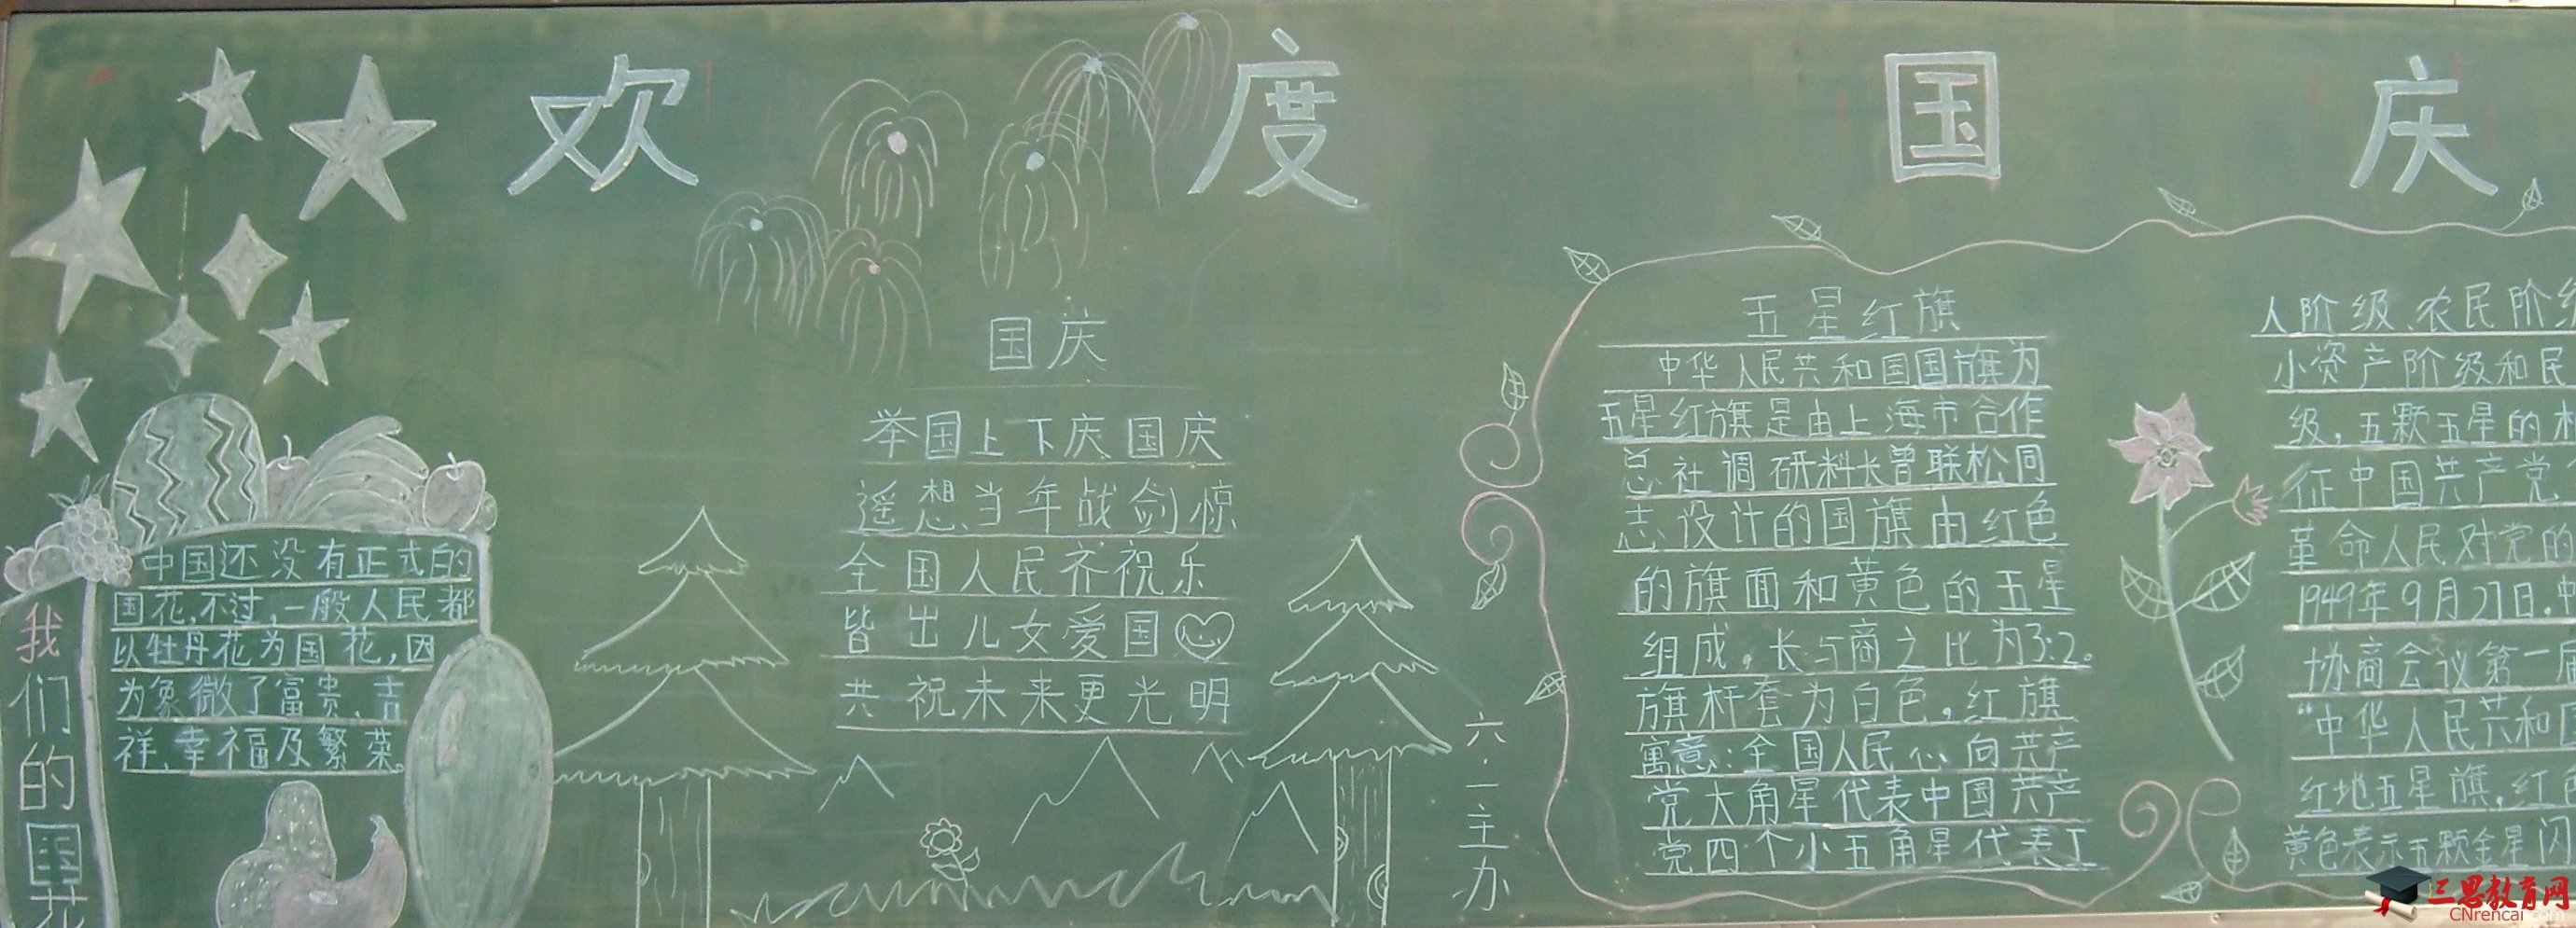 欢度国庆
我们的国花
中国还没有正式的
国花,不过,一般人民都
以牡丹花为国花,因
为象微了富贵、吉
祥、幸福及繁荣。
国庆
举国上下庆国庆
遥想当年战剑惊
全国人民齐祝乐
皆出儿女爱国
共祝未来更光明
六·一主办
五星红旗
中华人民共和国国旗为
五星红旗是由上海市合作
总社调研料长曾联松同
志设计的国旗由红色
的旗面和黄色的五星
组成,长与商之比为3:2。
旗杆套为白色,红旗
寓意:全国人民心向共产
党大角星代表中国共产
党四个小五角星代表工
人阶级、农民阶
小资产阶级和民
级,五颗五星的
征中国共产党
革命人民对党的
1949年9月27日,
协商会议第一届
“中华人民共和国
红地五星旗,红
黄色表示五颗金星闪
三思教育网
CNrencai.com